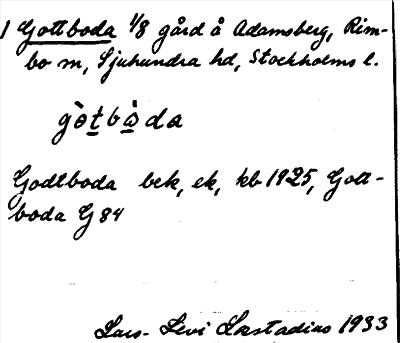 1 Gottboda 1/8 gård å Adamsberg, Rim-
bo sn, Sjuhundra hd, Stockholms l.
gòt̲bὰ̲da
Godtboda bek, ek, kb 1925, Gott-
boda G 84
Lars-Levi Læstadius 1933